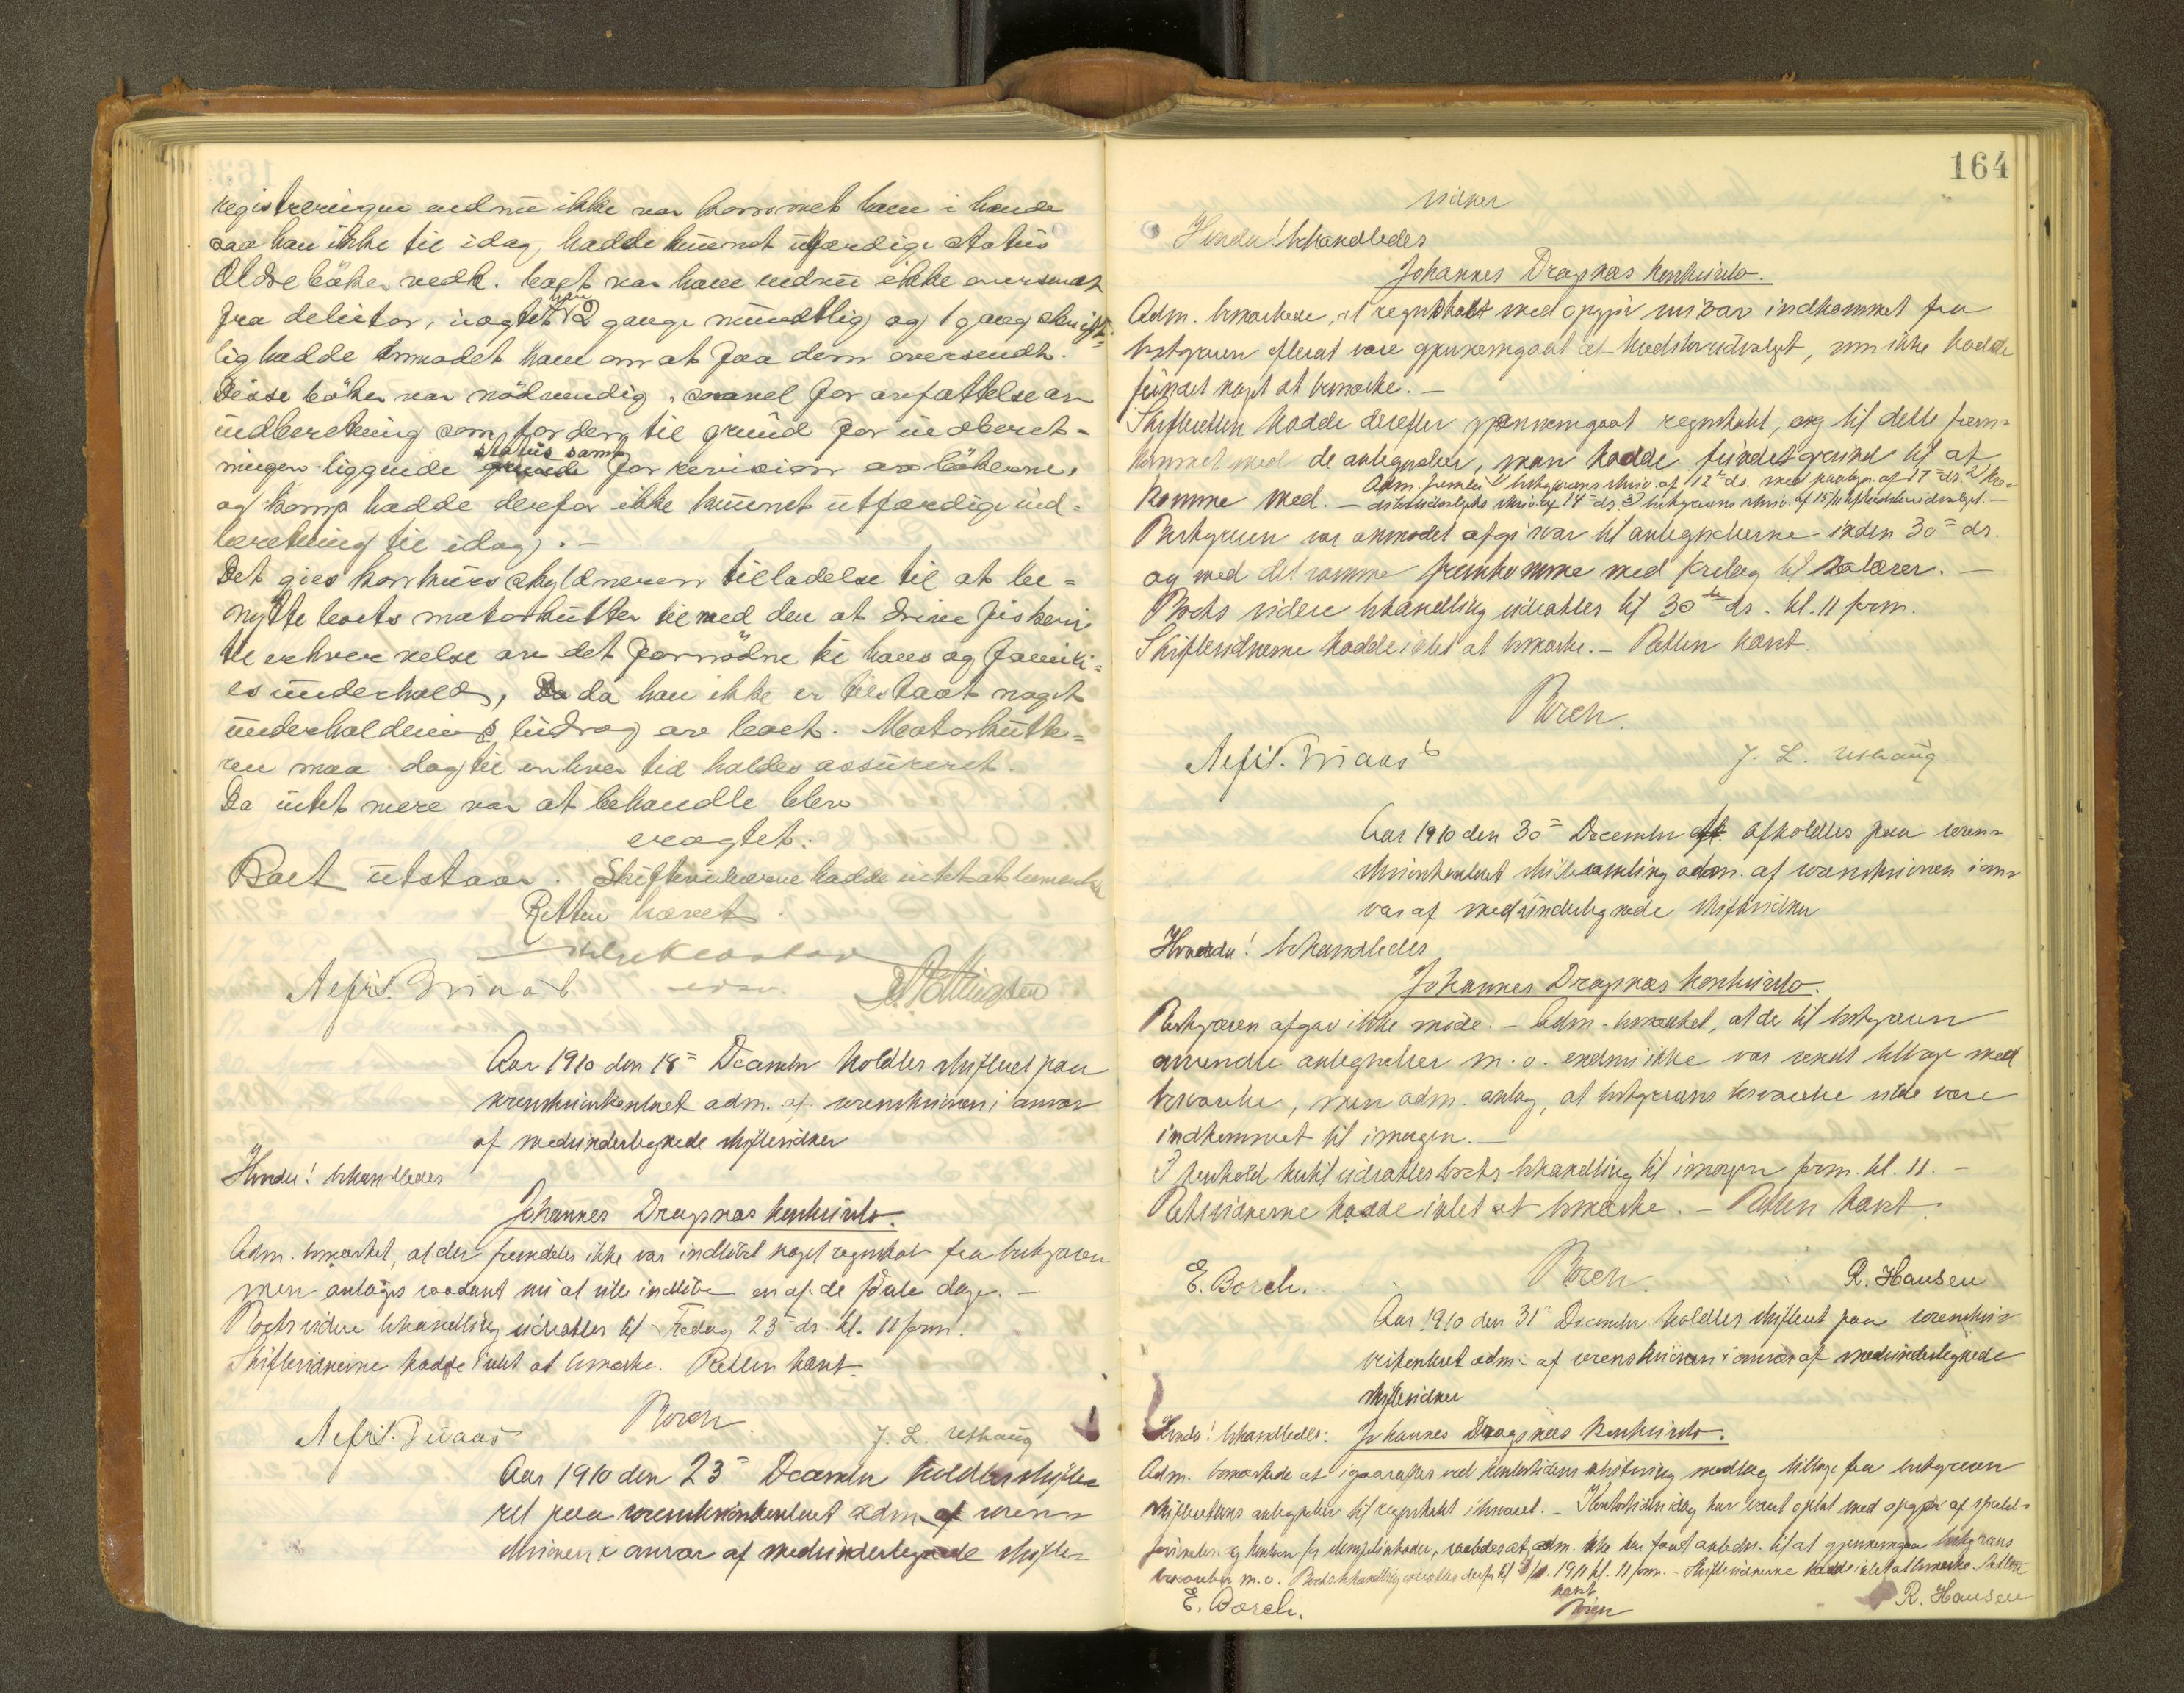 registreringen endnu ikke var kommet ham i hænde
saa han ikke til idag hadde kunnet utfærdige status
Ældre böker vedk. boet var ham endnu ikke oversendt
fra debitor, uagtet han 2 gange mundtlig og 1 gang skrift-
lig hadde anmodet ham om at faa dem oversendt.
Disse böker var nödvendig, saavel for avfattelse av
indberetning som for den til grund for indberet-
ningen liggende status samt for revision av bökerne,
og komp hadde derfor ikke kunnet utfærdige ind-
beretning til idag. —
Det gies konkursskyldneren tilladelse til at be-
nytte boets motorkutter til med den at drive fiskeri
til erhvervelse av det fornödne til hans og famili-
es underhold, da han ikke er tilstaat noget
underholdningsbidrag av boet. Motorkutte-
ren maa dog til enhver tid holdes assureret.
Da intet mere var at behandle blev
eragtet:
Boet utstaar. Skiftevidnerne hadde intet at bemerke
Retten hævet.
Aar 1910 den 18= December holdtes skifteret paa
sorenskriverkontoret adm. af sorenskriveren i overvær
af medundertegnede skiftevidner
Hvorda! behandledes
Johannes Dragnæs konkursbo.
Adm. bemærket, at der fremdeles ikke var indlöbet noget regnskab fra bestyreren
men antages saadant nu at ville indlöbe en af de förste dage. —
Boets videre behandling udsattes til Fredag 23= ds. kl. 11 form.
Skiftevidnerne hadde intet at bemærke. Retten hævet
Borch.
J. L. Ushaug
Aar 1910 den 23= December holdtes skifte-
ret paa sorenskriverkontoret adm. af soren-
skriveren i overvær af medundertegnede skifte-
164
vidner
Hvorda! behandledes
Johannes Dragnæs konkursbo.
Adm. bemærkede, at regnskabet med opgjör nu var indkommet fra
bestyreren efterat være gjennemgaat af kreditorudvalget, som ikke hadde
fundet noget at bemærke. —
Skifteretten hadde derefter gjennemgaat regnskabet, og til dette frem-
kommet med de antegnelser, man hadde fundet grund til at
komme med. — Adm. fremla 1) bestyrerens skriv. af 12= ds. med paategn. af 17= ds. 2) kre-
ditorudvalgets skriv. af 14= ds. 3) bestyrerens skriv. af 15/11 til kreditorudvalget. —
Bestyreren var anmodet afgi svar til antegnelserne inden 30= ds.
og med det samme fremkomme med forslag til salærer. —
Boets videre behandling udsattes til 30te ds. kl. 11 form.
Skiftevidnerne hadde intet at bemærke. — Retten hævet.
Borch.
J. L. Ushaug
Aar 1910 den 30= December afholdtes paa soren-
skriverkontoret skiftesamling adm. af sorenskriveren i over-
vær af medundertegnede skiftevidner
Hvorda! behandledes
Johannes Dragnæs konkursbo.
Bestyreren afgav ikke möde. — Adm. bemærket, at de til bestyreren
oversendte antegnelser m. v. endnu ikke var sendt tilbage med
besvarelse, men adm. antog, at bestyrerens besvarelse vilde være
indkommet til imorgen. —
I henhold hertil udsattes boets behandling til imorgen form. kl. 11. —
Retsvidnerne hadde intet at bemærke. — Retten hævet.
E. Borch.
Borch.
R. Hansen
Aar 1910 den 31= December holdtes skifteret paa sorenskri-
verkontoret adm. af sorenskriveren i overvær af medundertegnede
skiftevidner
Hvorda! behandledes: Johannes Dragnæs konkursbo.
Adm. bemærkede at igaaraftes ved kontortidens slutning modtog tilbage fra bestyreren
skifterettens antegnelser til regnskabet i besvaret. — Kontortiden idag har været optat med opgjör af
saaledes at adm. ikke har faaet anledn. til at gjennemgaa bestyrerens
besvarelser m. v. Boets behandling udsattes derfor til 1911 kl. 11 form. — Skiftevidnerne hadde intet at bemærke. Retten
hævet
E. Borch.
Borch
R. Hansen